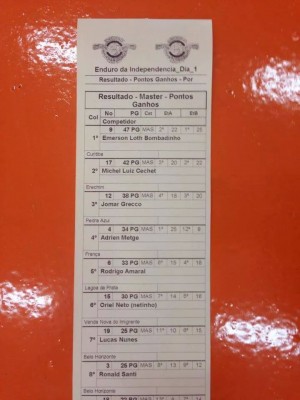 Enduro da Independencia_Dia_1
Resultado - Pontos Ganhos - Por
Resultado - Master - Pontos
Ganhos
Col No PG Cat EtA EtB
Competidor
1º 9 47 PG MAS 2º 22 1º 25
Emerson Loth Bombadinho
Curitiba
2º 17 42 PG MAS 3º 20 2º 22
Michel Luiz Cechet
Erechim
3º 12 38 PG MAS 4º 18 3º 20
Jomar Grecco
Pedra Azul
4º 4 34 PG MAS 1º 25 12º 9
Adrian Metge
França
5º 6 33 PG MAS 15 4º 18
Rodrigo Amaral
Lagoa da Prata
6º 15 30 PG MAS 7º 14 5º 16
Oriel Neto (nelinho)
Venda Nova do Imigrante
7º 19 25 PG MAS 11º 10 15
Lucas Nunes
Belo Horizonte
8º 3 25 PG MAS 13 9º 12
Ronald Santi
Belo Horizonte